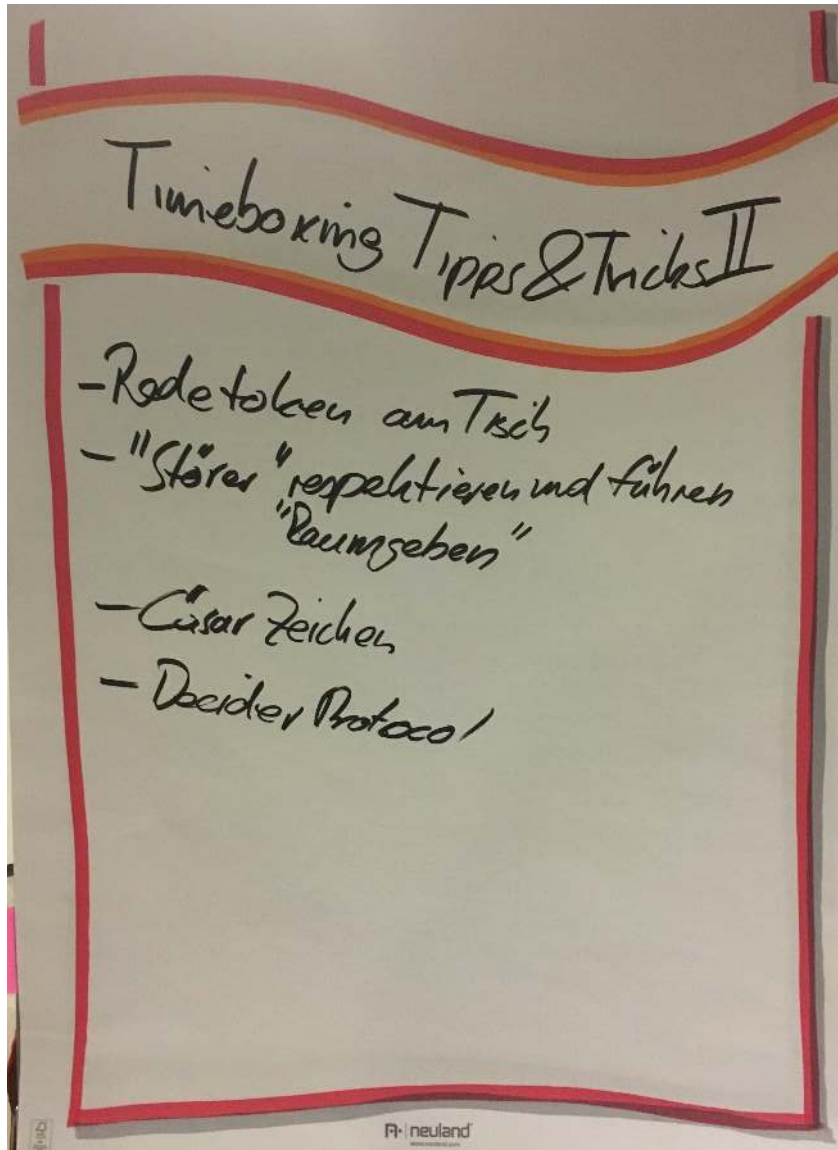 Timeboxing Tipps & Tricks II
- Redetoken am Tisch
- "Störer" respektieren und führen
"Raumgeben"
- Cäsar Zeichen
- Decider Protocol
neuland